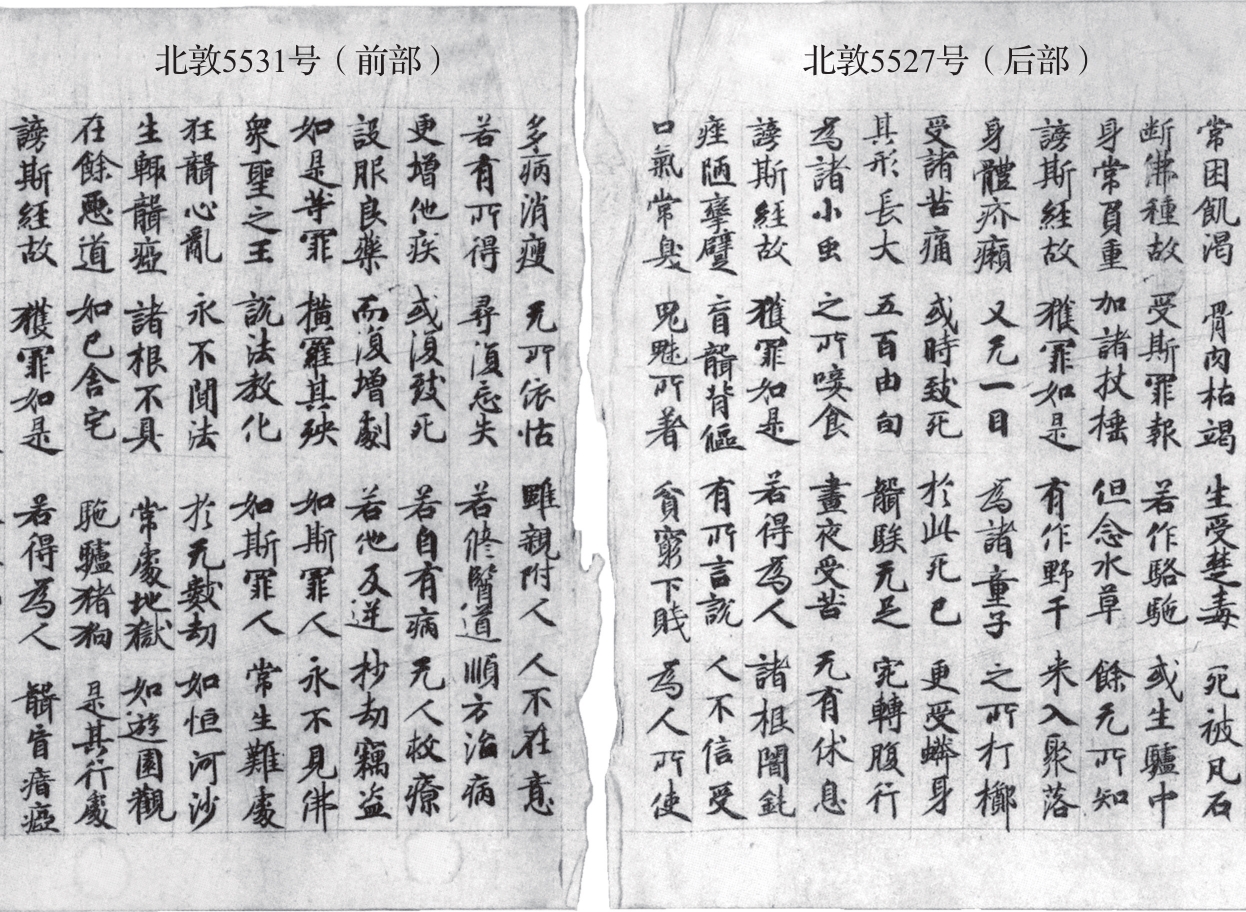 北敦5527号（后部）
常困飢渴 骨肉枯竭 生受楚毒 死被瓦石
断佛種故 受斯罪報 若作駱駞 或生驢中
身常負重 加諸杖捶 但念水草 餘无所知
謗斯經故 獲罪如是 有作野干 来入聚落
身體疥癩 又无一目 為諸童子 之所打擲
受諸苦痛 或時致死 於此死已 更受蟒身
其形長大 五百由旬 聾騃无足 宛轉腹行
為諸小虫 之所唼食 晝夜受苦 无有休息
謗斯經故 獲罪如是 若得為人 諸根闇鈍
痤陋攣躄 盲聾背傴 有所言説 人不信受
口氣常臭 鬼魅所著 貧窮下賤 為人所使
北敦5531号（前部）
多病消瘦 无所依怙 雖親附人 人不在意
若有所得 尋復忘失 若修醫道 順方治病
更增他疾 或復致死 若自有病 无人救療
設服良藥 而復增劇 若他反逆 抄劫竊盗
如是等罪 横羅其殃 如斯罪人 永不見佛
衆聖之王 説法教化 如斯罪人 常生難處
狂聾心亂 永不聞法 於无數劫 如恒河沙
生輙聾瘂 諸根不具 常處地獄 如遊園觀
在餘惡道 如己舍宅 駞驢猪狗 是其行處
謗斯經故 獲罪如是 若得為人 聾盲瘖瘂